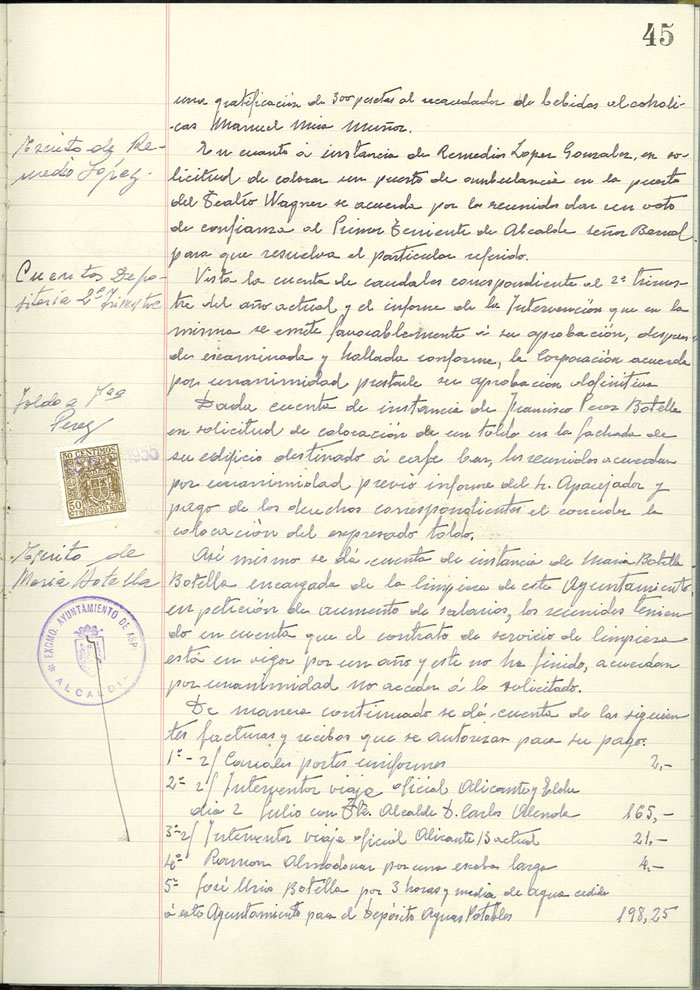 45
una gratificación de 300 pesetas al recaudador de bebidas alcoholi-
cas Manuel Mira Muñoz.
Escrito de Re-
medio López.
En cuanto á instancia de Remedios Lopez Gonzalez, en so-
licitud de colocar un puesto de ambulancia en la puerta
del Teatro Wagner se acuerda por los reunidos dar un voto
de confianza al Primer Teniente de Alcalde señor Bernal
para que resuelva el particular referido.
Cuentas Depo-
sitaria 2º Trimestre
Vista la cuenta de caudales correspondiente al 2º trimes-
tre del año actual y el informe de la Intervención que en la
misma se emite favorablemente á su aprobación, despues
de examinada y hallada conforme, la Corporación acuerda
por unanimidad prestarle su aprobación definitiva
Toldo a
Perez
Dada cuenta de instancia de Francisco Perez Botella
en solicitud de colocación de un toldo en la fachada de
su edificio destinado á cafe bar, los reunidos acuerdan
por unanimidad previo informe del Sr. Aparejador y
pago de los derechos correspondientes el conceder la
colocación del expresado toldo.
50 CENTIMOS
50
CTS ESPECIAL MOVIL
1950
Escrito de
Maria Botella
Asi mismo se dá cuenta de instancia de Maria Botella
Botella encargada de la limpieza de este Ayuntamiento,
en petición de aumento de salarios, los reunidos tenien-
do en cuenta que el contrato de servicio de limpieza
está en vigor por un año y este no ha finido, acuerdan
por unanimidad no acceder á lo solicitado.
EXCMO. AYUNTAMIENTO DE ASP
ALCALDIA
De manera continuado se dá cuenta de las siguien-
tes facturas y recibos que se autorizan para su pago:
1º - r/ Canales portes uniformes 2,-
2º r/ Interventor viaje oficial Alicante y Elda
dia 2 Julio con Alcalde D. Carlos 165,-
3º r/ Interventor viaje oficial Alicante 13 actual 21,-
4º Ramon Almodovar por una escoba larga 4,-
5º José Mira Botella por 3 horas y media de agua cedida
á este Ayuntamiento para el Depósito Aguas Potables 198,25